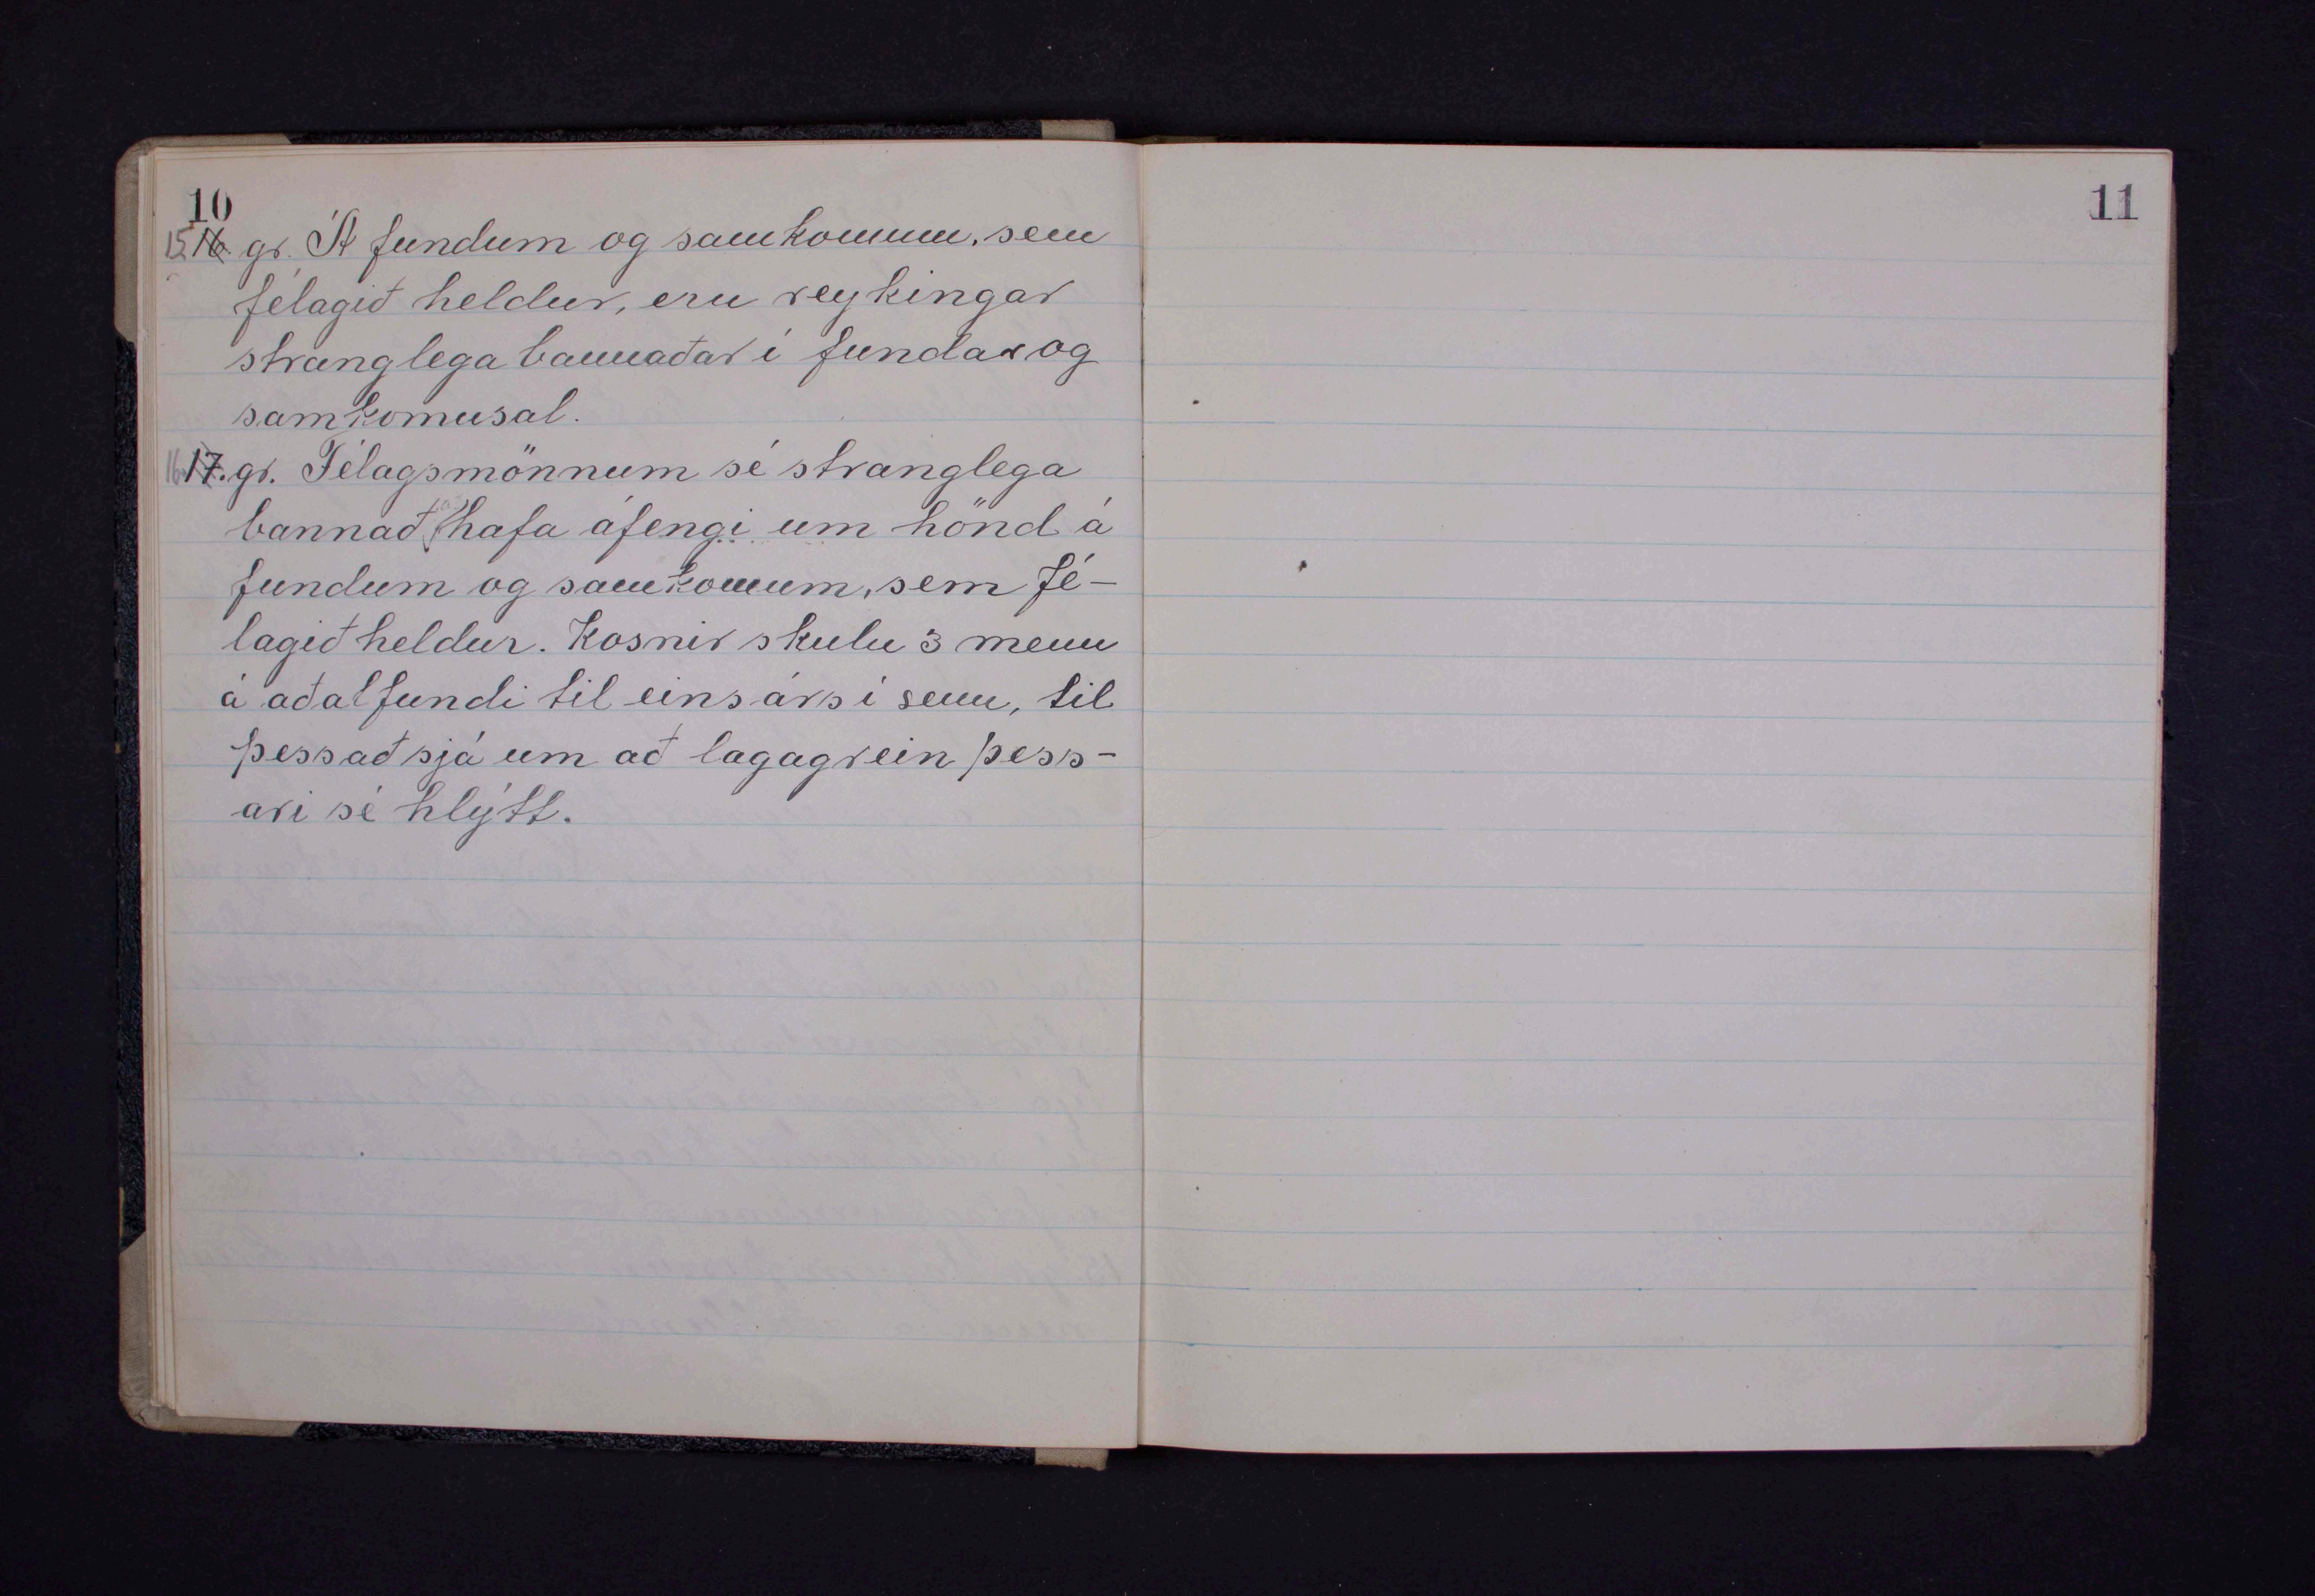 10
15. 16. gr. Á fundum og samkomum, sem
félagið heldur, eru reykingar
stranglega bannaðar í fundar og
samkomusal.
16. 17. gr. Félagsmönnum sé stranglega
bannað að hafa áfengi um hönd á
fundum og samkomum, sem fé-
lagið heldur. Kosnir skulu 3 menn
á aðalfundi til eins árs í senn, til
þess að sjá um að lagagrein þess-
ari sé hlýtt.
11